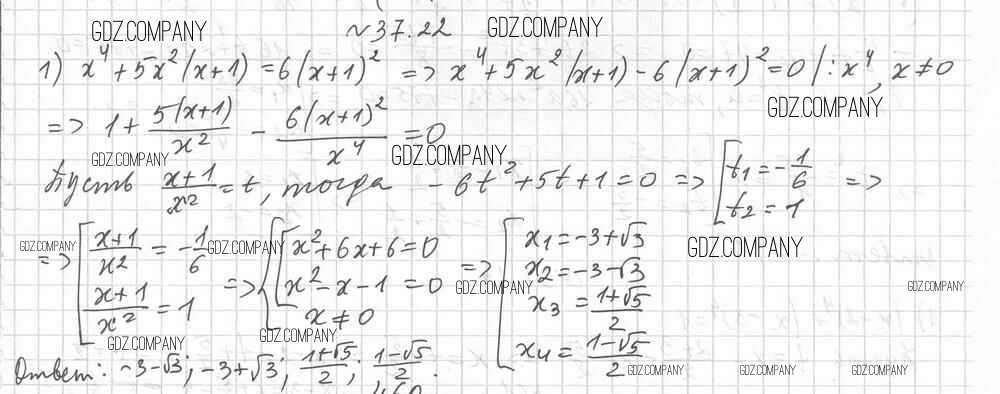 GDZ.COMPANY ~37.22 GDZ.COMPANY
1) x⁴+5x²(x+1)=6(x+1)² => x⁴+5x²(x+1)-6(x+1)²=0 |:x⁴, x≠0
GDZ.COMPANY
=> 1+ 5(x+1)/x² - 6(x+1)²/x⁴ =0
GDZ.COMPANY GDZ.COMPANY
Пусть (x+1)/x² = t, тогда -6t²+5t+1=0 => [t₁=-1/6 =>
t₂=1
GDZ.COMPANY GDZ.COMPANY GDZ.COMPANY
=> [(x+1)/x² = -1/6 => {[x²+6x+6=0 => [x₁=-3+√3
(x+1)/x² = 1 x²-x-1=0 x₂=-3-√3
x≠0 x₃=(1+√5)/2
x₄=(1-√5)/2
GDZ.COMPANY GDZ.COMPANY
GDZ.COMPANY GDZ.COMPANY
Ответ: -3-√3; -3+√3; (1+√5)/2; (1-√5)/2.
GDZ.COMPANY GDZ.COMPANY GDZ.COMPANY